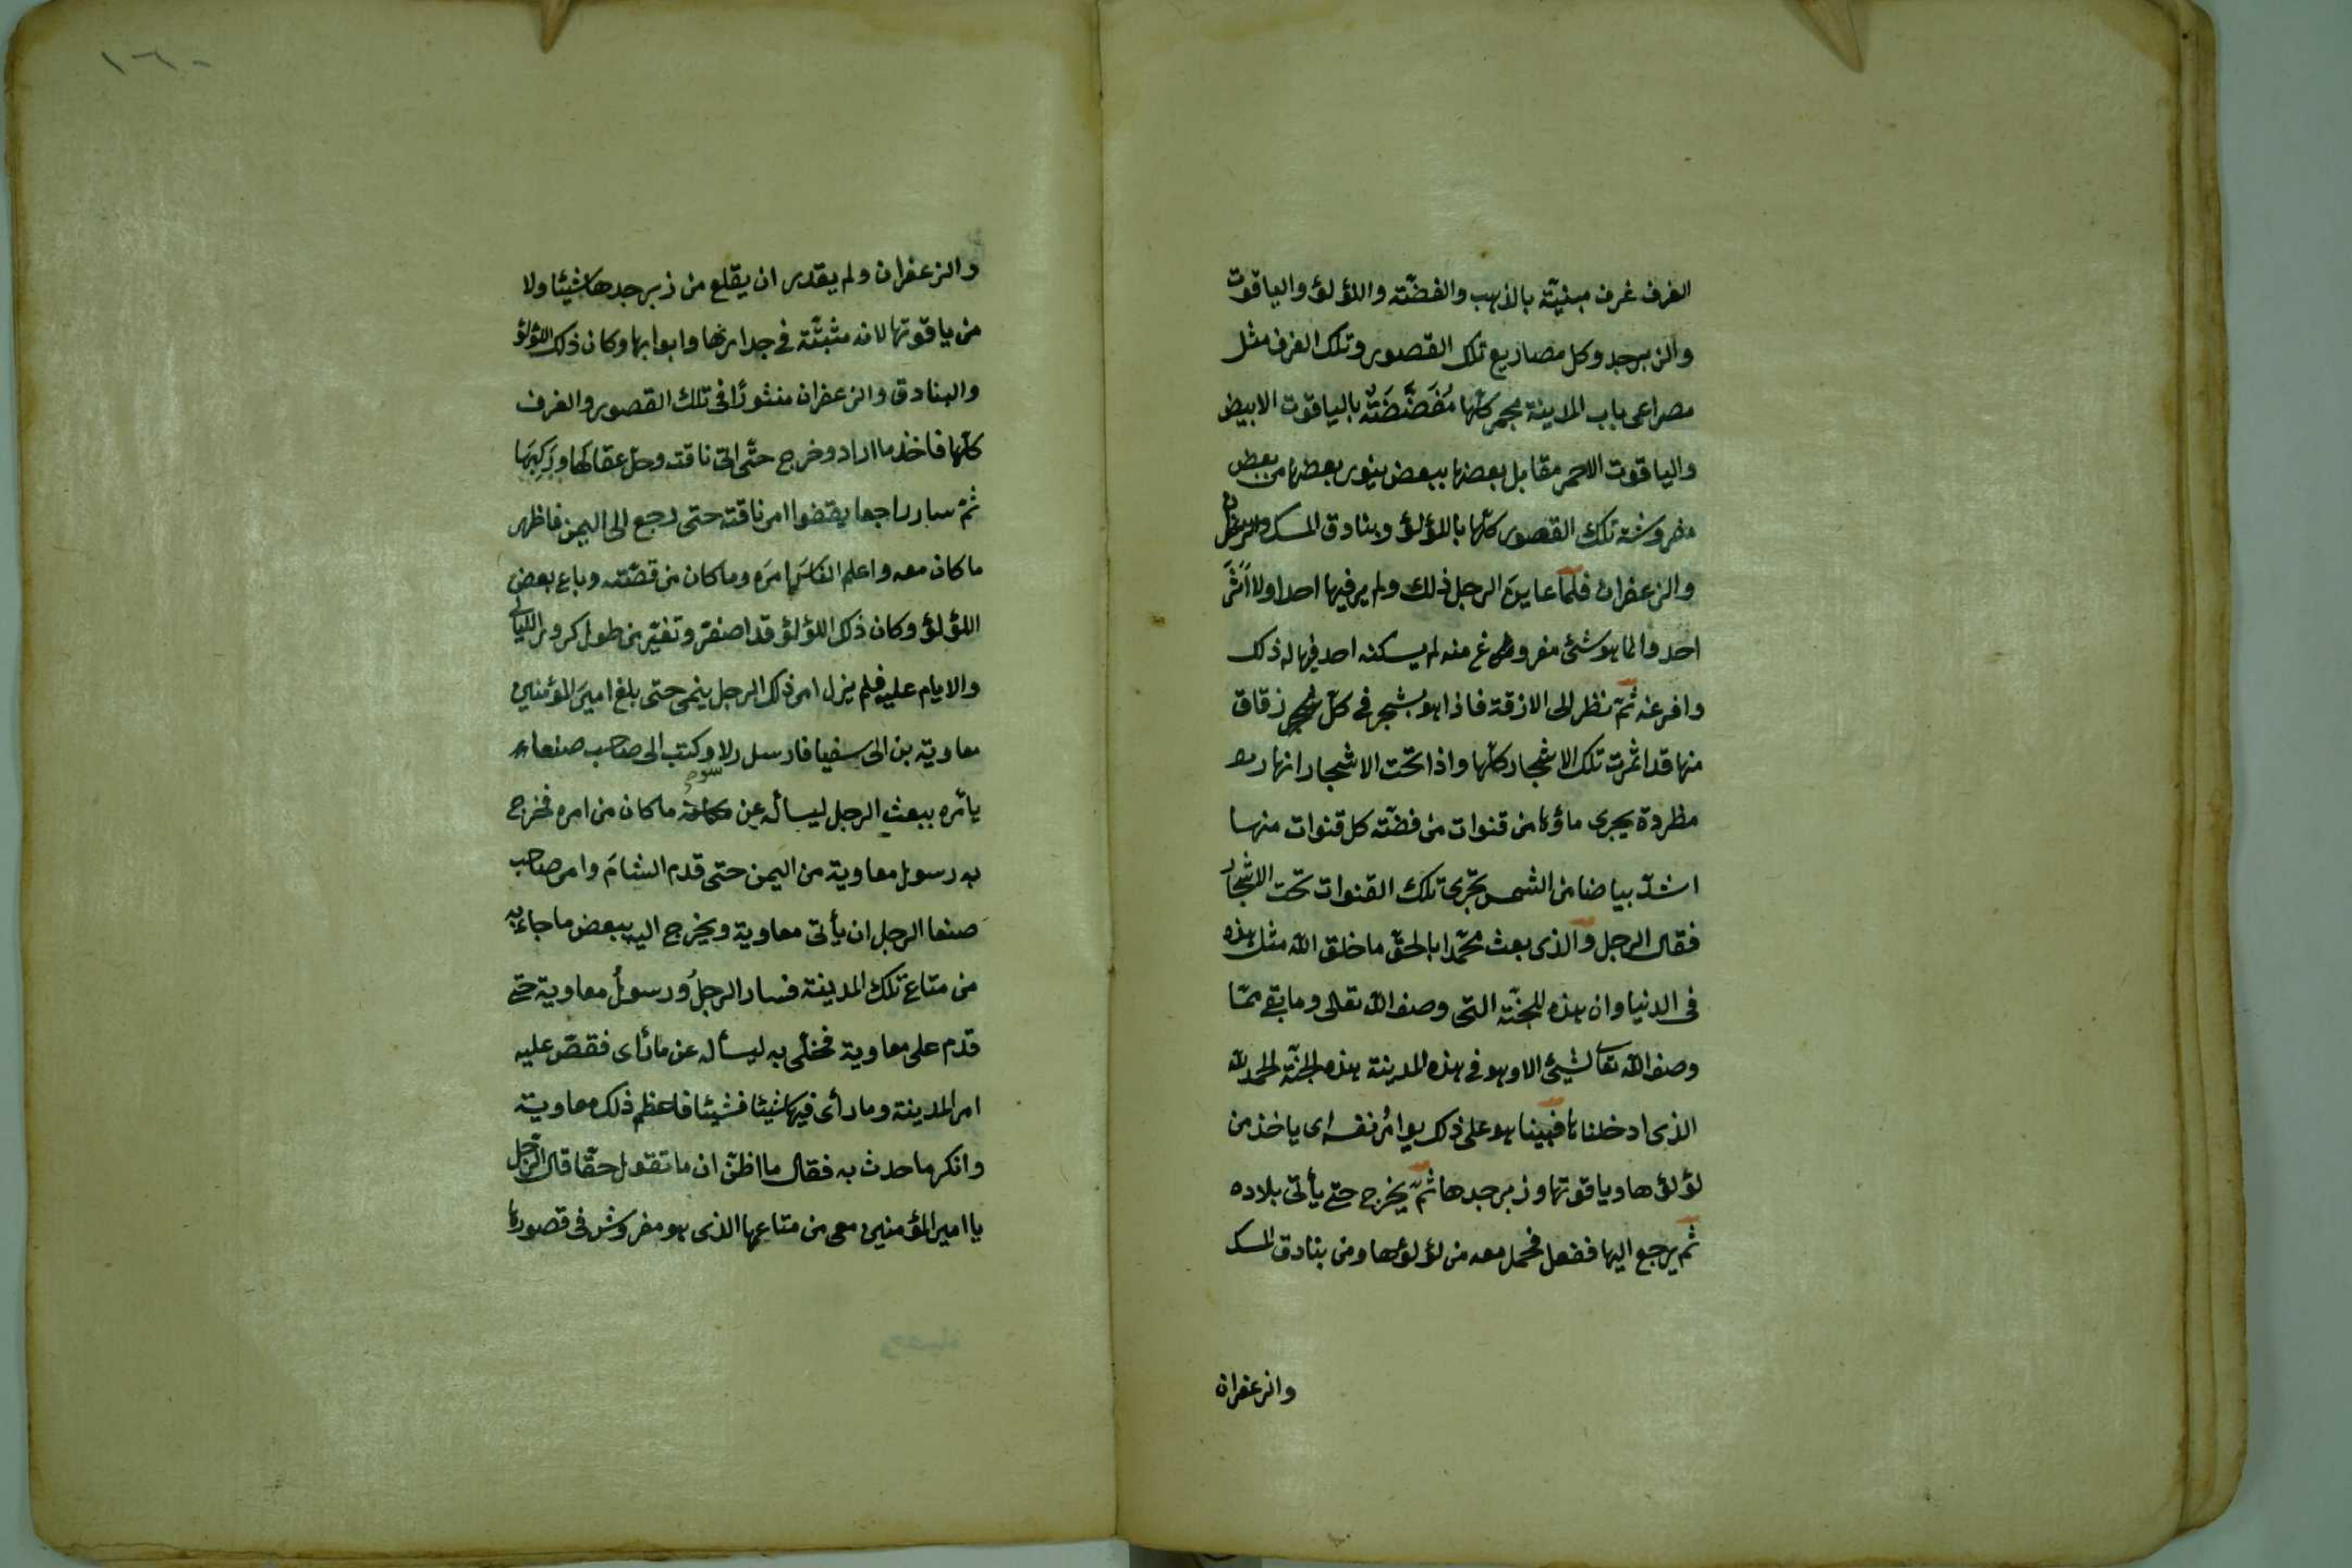 الغرف غرف مبنيّة بالذهب والفضّة واللؤلؤ والياقوت
والزبرجد وكل مصاريع تلك القصور وتلك الغرف مثل
مصراعى باب المدينة بحجر كلّها مُفَضَّضَةٌ بالياقوت الابيض
والياقوت الاحمر مقابل بعضها ببعض ينور بعضها من بعض
مفروشة تلك القصور كلّها باللؤلؤ وبنادق المسك والزعفران
والزعفران فلمّا عاينَ الرجل ذلك ولم ير فيها احدا ولا اَثَرَ
احد وانما هو شئ مفروغ منه لم يسكنه احد فيها له ذلك
وافرعنه ثمّ نظر الى الازقة فاذا هو بشجر فى كلّ زقاق
منها قد اثمرت تلك الاشجار كلّها واذا تحت الاشجار انهار
مطّردة يجرى ماؤها من قنوات من فضّة كل قنوات منها
اشدّ بياضا من الشمس تجرى تلك القنوات تحت الاشجار
فقال الرجل والذى بعث محمّدا بالحقّ ما خلق الله مثل هذه
فى الدنيا وان هذه للجنّة التى وصف الله تعالى وما بقى ممّا
وصف الله تعالى شئ الا وهو فى هذه المدينة هذه الجنّة الحمد لله
الذى ادخلناها فبينا هو على ذلك يوامُر نفسه اى ياخذ من
لؤلؤها وياقوتها وزبرجدها ثمّ يخرج حتى يأتى بلاده
ثم يرجع اليها ففعل فحمل معه من لؤلؤها ومن بنادق المسك
والزعفران
١٦٠
والزعفران ولم يقدر ان يقلع من زبرجدها شيئا ولا
من ياقوتها لانه مثبتّة فى جدارتها وابوابها وكان ذلك اللؤلؤ
والبنادق والزعفران منثورًا فى تلك القصور والغرف
كلّها فاخذ ما اراد وخرج حتّى اتى ناقته وحلّ عقالها ورَكِبَها
ثمّ سار راجعا يقفوا اثر ناقته حتى رجع الى اليمن فاظهر
ما كان معه واعلم النّاسَ امرَه وما كان من قصّته وباع بعض
اللؤلؤ وكان ذلك اللؤلؤ قد اصفرّ وتغيّر من طول كرور الليالى
والايام عليه فلم يزل امر ذلك الرجل ينمى حتى بلغ اميرَ المؤمنين
معاوية بن ابى سفيا فارسل رلا وكتب الى صاحب صنعاء
يأمره ببعث الرجل ليسأله عن ما كان من امره فخرج
به رسول معاوية من اليمن حتى قدم الشامَ وامر صاحب
صنعا الرجل ان يأتى معاوية ويخرج اليه ببعض ما جاء به
من متاع تلك المدينة فسار الرجلُ ورسولُ معاوية حتى
قدم على معاوية فخلّى به ليسأله عن ما رأى فقصّ عليه
امر المدينة وما رأى فيها شيئا فشيئا فاعظم ذلك معاوية
وانكر ما حدث به فقال ما اظنّ ان ما تقول حقّا قال الرّجل
يا امير المؤمنين معى من متاعها الذى هو مفروش فى قصورها